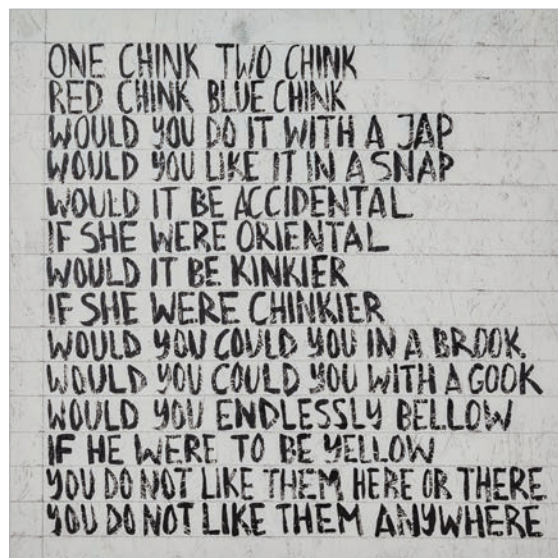 ONE CHINK TWO CHINK
RED CHINK BLUE CHINK
WOULD YOU DO IT WITH A JAP
WOULD YOU LIKE IT IN A SNAP
WOULD IT BE ACCIDENTAL
IF SHE WERE ORIENTAL
WOULD IT BE KINKIER
IF SHE WERE CHINKIER
WOULD YOU COULD YOU IN A BROOK
WOULD YOU COULD YOU WITH A GOOK
WOULD YOU ENDLESSLY BELLOW
IF HE WERE TO BE YELLOW
YOU DO NOT LIKE THEM HERE OR THERE
YOU DO NOT LIKE THEM ANYWHERE